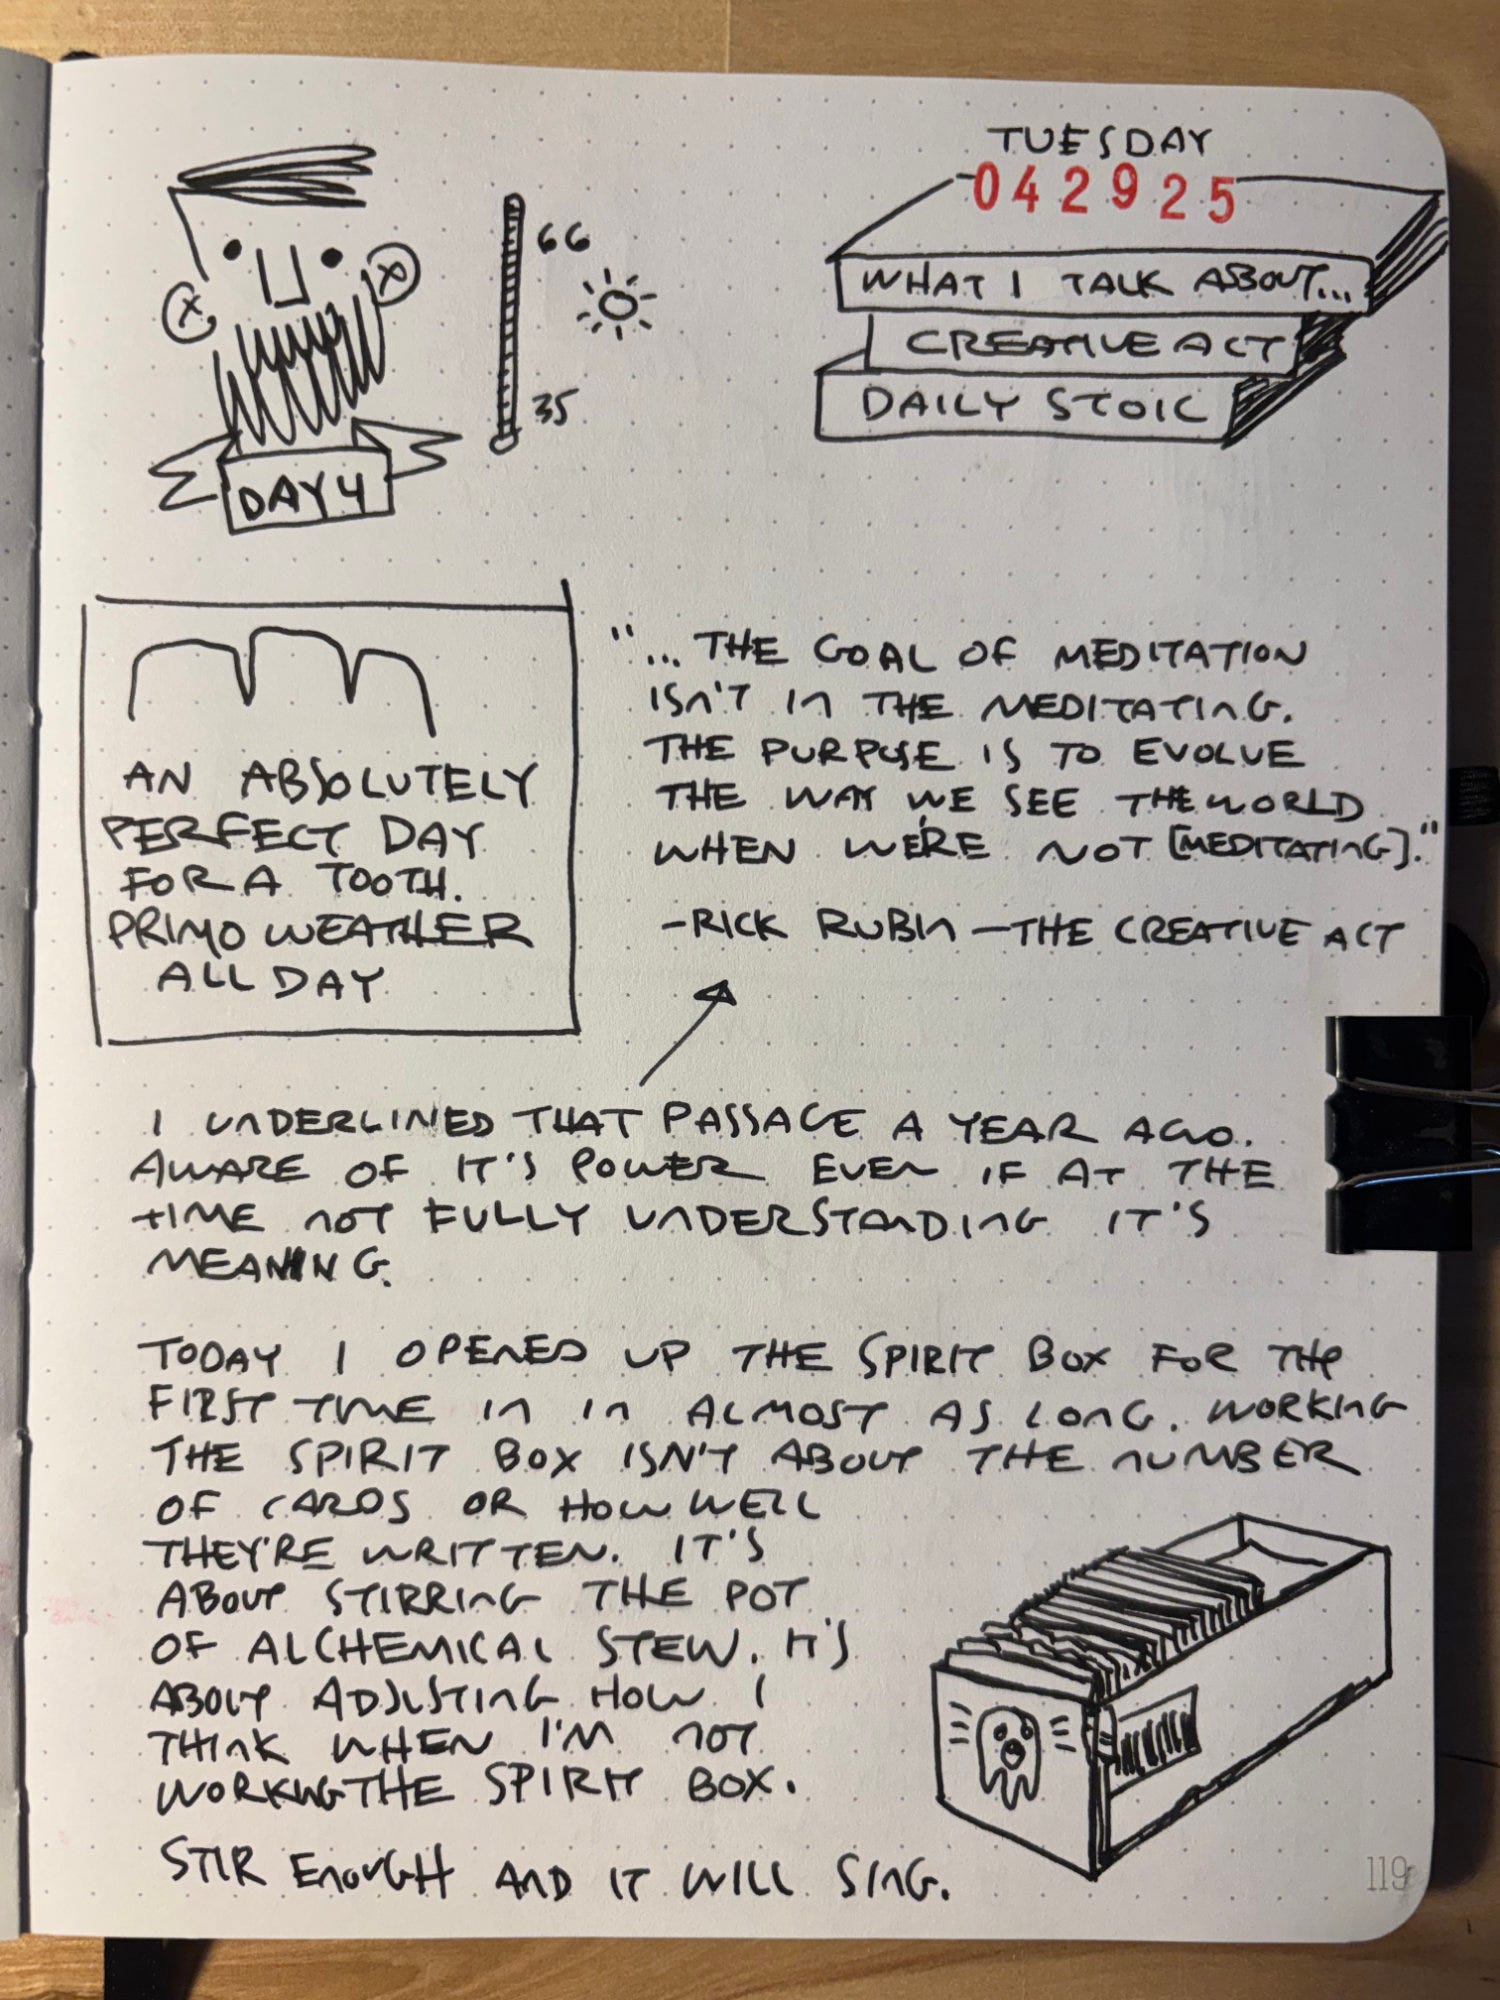 TUESDAY
042925
WHAT I TALK ABOUT...
CREATIVE ACT
DAILY STOIC
66
35
DAY 4
AN ABSOLUTELY
PERFECT DAY
FOR A TOOTH.
PRIMO WEATHER
ALL DAY
"... THE GOAL OF MEDITATION
ISN'T IN THE MEDITATING.
THE PURPOSE IS TO EVOLVE
THE WAY WE SEE THE WORLD
WHEN WE'RE NOT [MEDITATING]."
-RICK RUBIN-THE CREATIVE ACT
I UNDERLINED THAT PASSAGE A YEAR AGO.
AWARE OF IT'S POWER EVEN IF AT THE
TIME NOT FULLY UNDERSTANDING IT'S
MEANING.
TODAY I OPENED UP THE SPIRIT BOX FOR THE
FIRST TIME IN IN ALMOST AS LONG. WORKING
THE SPIRIT BOX ISN'T ABOUT THE NUMBER
OF CARDS OR HOW WELL
THEY'RE WRITTEN. IT'S
ABOUT STIRRING THE POT
OF ALCHEMICAL STEW. IT'S
ABOUT ADJUSTING HOW I
THINK WHEN I'M NOT
WORKING THE SPIRIT BOX.
STIR ENOUGH AND IT WILL SING.
119